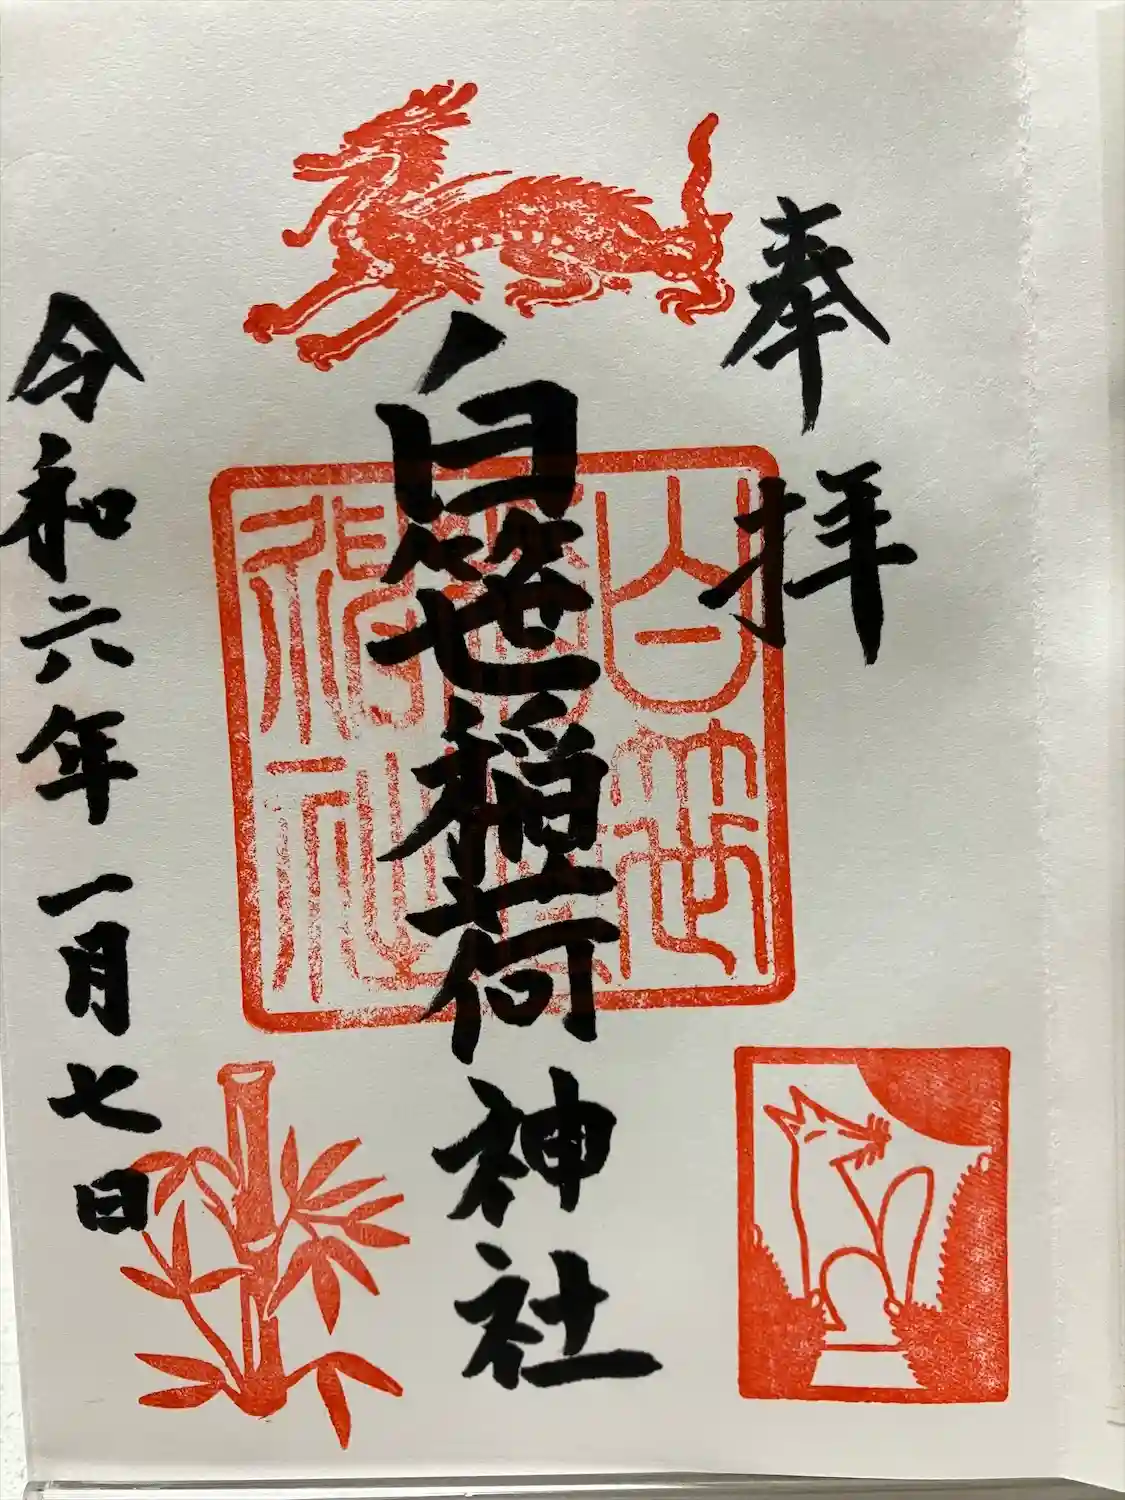 奉拝
白笹稲荷神社
白笹稲荷神社
令和六年一月七日